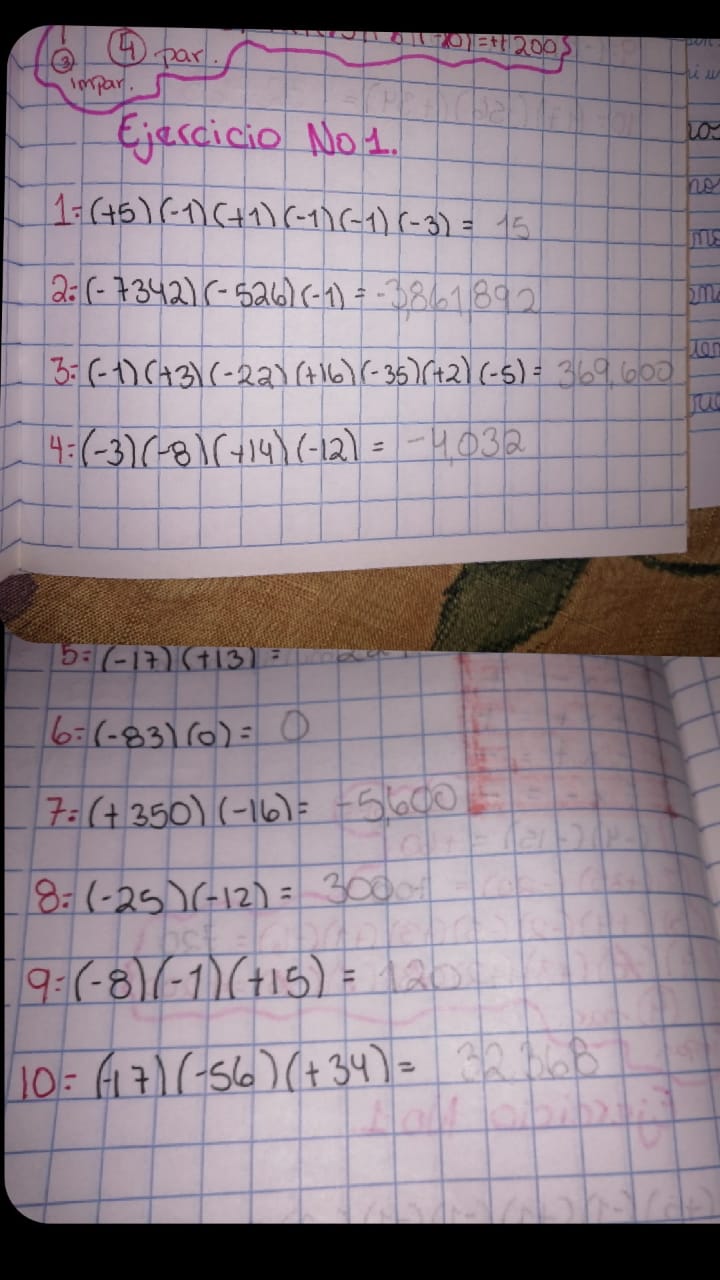 0)=+1200}
③ ④ par.
impar.
Ejercicio No 1.
1= (+5) (-1) (+1) (-1) (-1) (-3) = 15
2= (-7342) (-526) (-1) = -3,861,892
3= (-1) (+3) (-22) (+16) (-35) (+2) (-5) = 369,600
4= (-3) (-8) (+14) (-12) = -4,032
5= (-17) (+13) =
6= (-83) (0) = 0
7= (+350) (-16) = -5,600
8= (-25) (-12) = 300
9= (-8) (-1) (+15) = 120
10= (-17) (-56) (+34) = 32,368